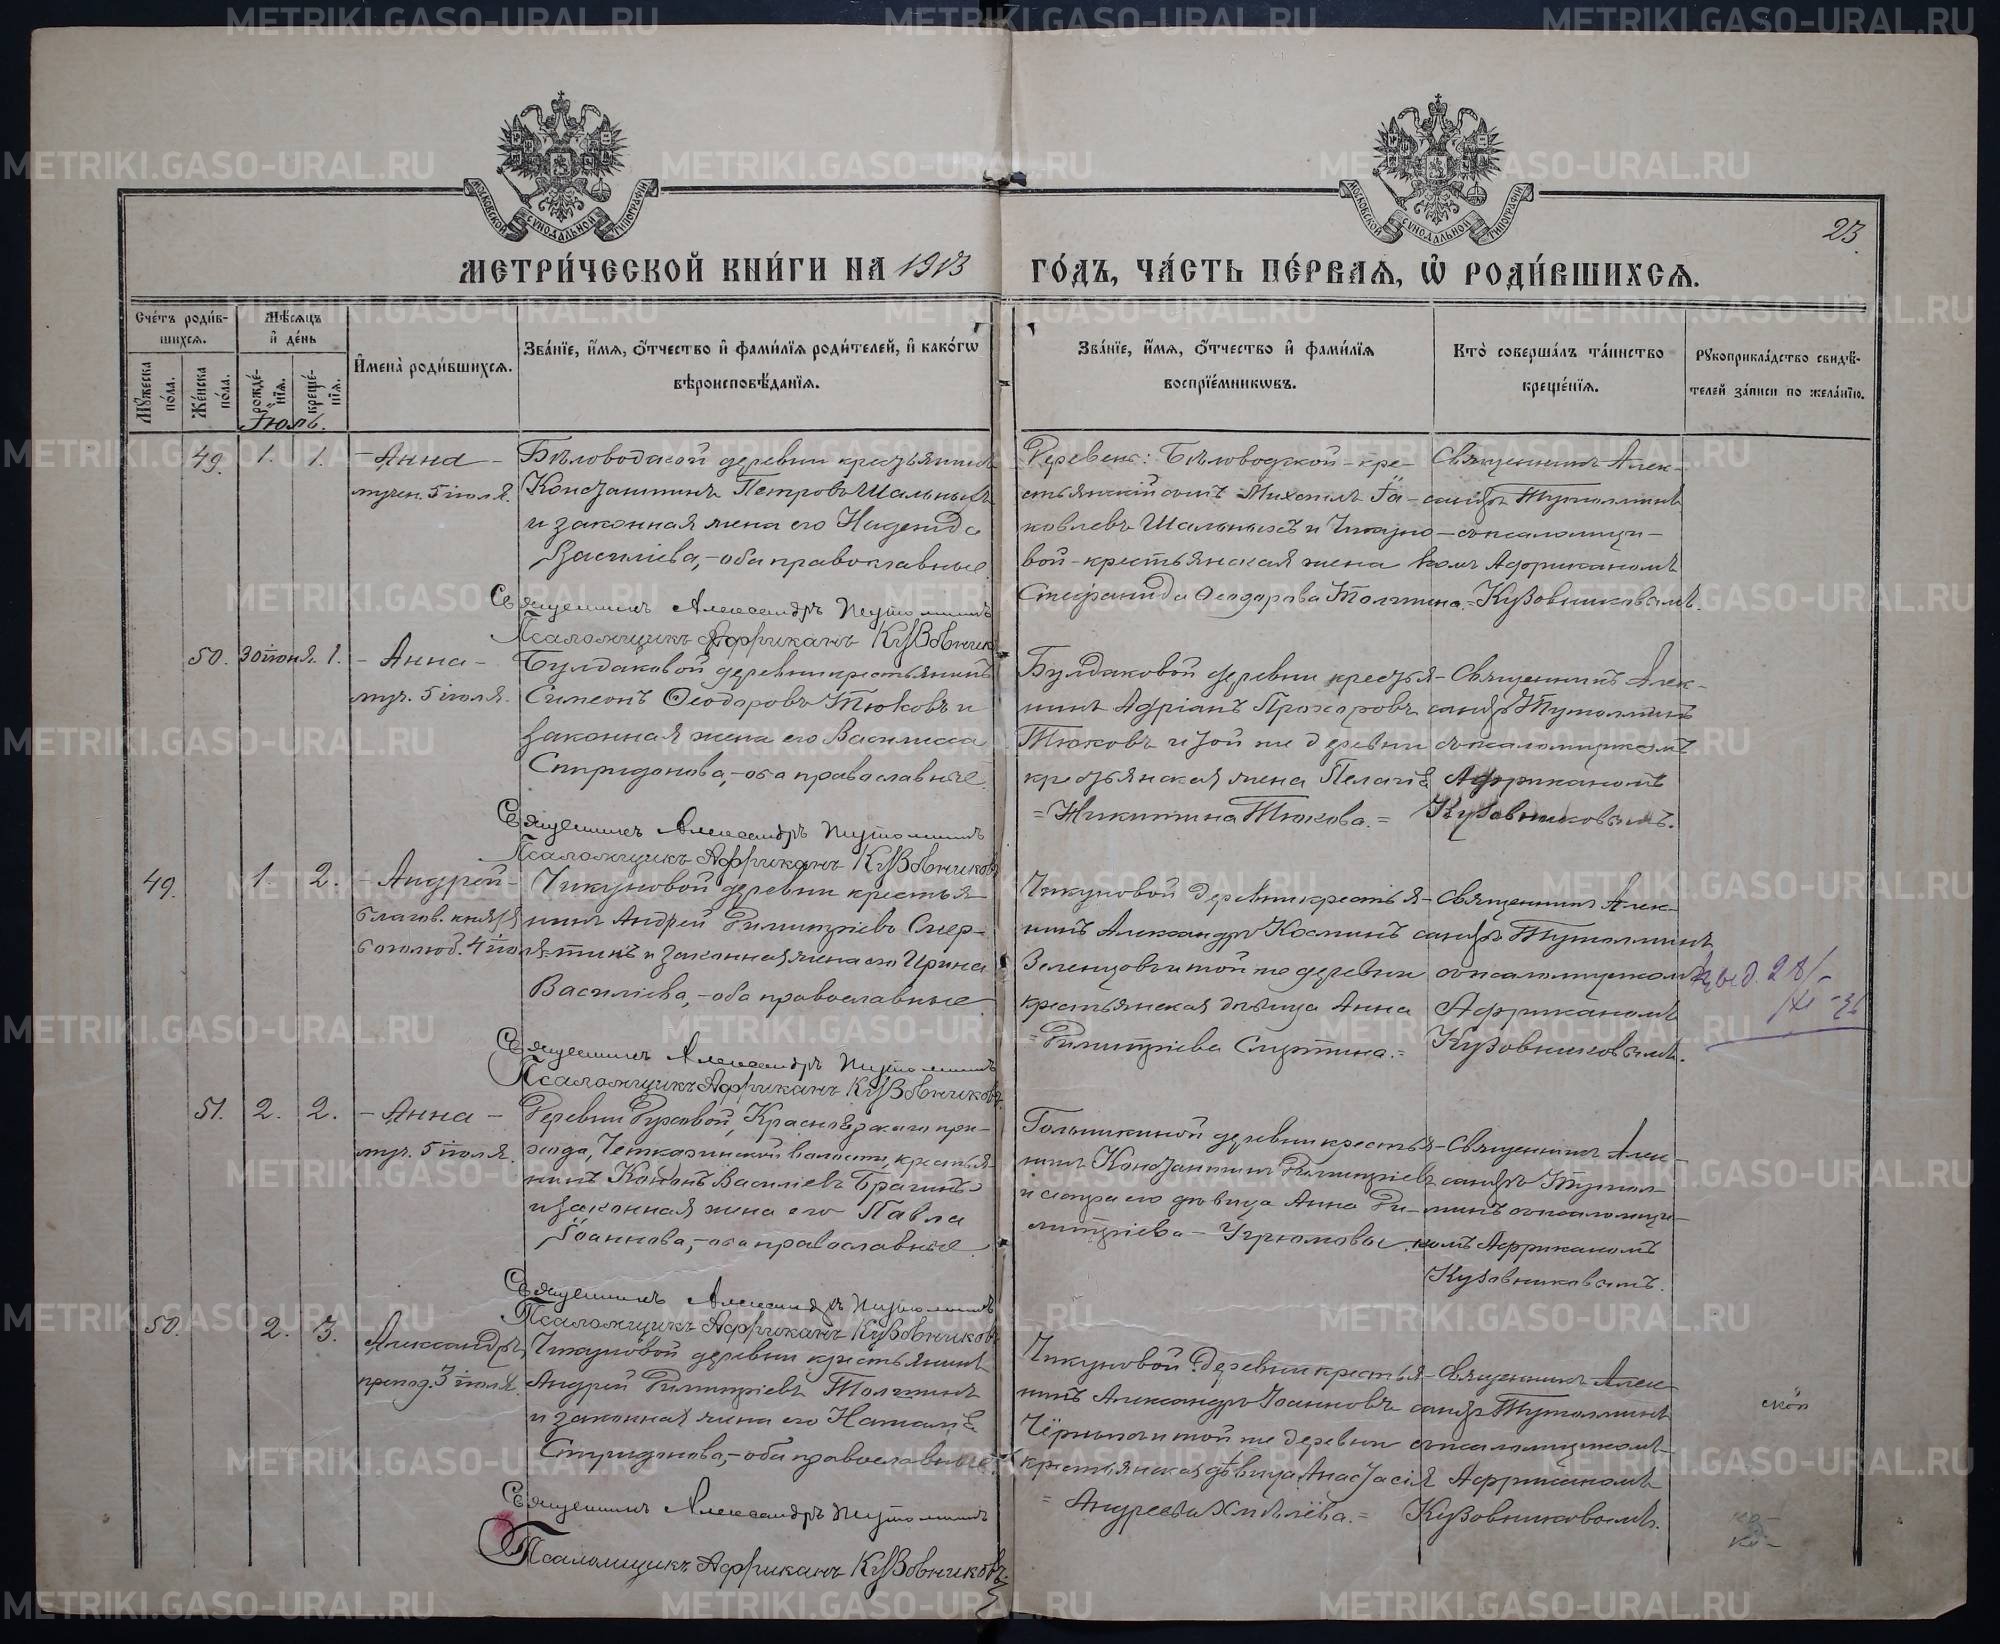 МОСКОВСКОЙ СѴНОДАЛЬНОЙ ТИПОГРАФІИ
МОСКОВСКОЙ СѴНОДАЛЬНОЙ ТИПОГРАФІИ
23
МЕТРИ́ЧЕСКОЙ КНИ́ГИ НА 1913 ГО́ДЪ, ЧА́СТЬ ПЕ́РВАЯ, Ѽ РОДИ́ВШИХСЯ.
Сче́тъ роди́в-
шихся.
Мѣ́сяцъ
и де́нь
Мꙋ́жеска по́ла.
Же́нска по́ла.
рожде́-нїя.
креще́-нїя.
И҆мена̀ роди́вшихся.
Зва́нїе, и҆́мя, ѻ҆́тчество и҆ фами́лїя роди́телей, и҆ како́гѡ
вѣроисповѣ́данїя.
Зва́нїе, и҆́мя, ѻ҆́тчество и҆ фами́лїя
воспрїе́мникѡвъ.
Кто̀ соверша́лъ та́инство
креще́нїя.
Рꙋкоприкла́дство свидѣ́-
телей за́писи по жела́нїю.
Іюль.
49. 1. 1.
- Анна -
мучен. 5 іюля.
Бѣловодской деревни крестьянинъ
Константинъ Петровъ Шальныхъ
и законная жена его Надежда
Василіева, - оба православные
Священникъ Александръ Тутолминъ
Псаломщикъ Африканъ Кузовников
Деревень: Бѣловодской - кре-
стьянскій сынъ Михаилъ Іа-
ковлевъ Шальныхъ и Чикуно-
вой - крестьянская жена
Степанида Ѳеодорова Толстина.=
Священникъ Алек-
сандръ Тутолминъ
съ псаломщи-
комъ Африканомъ
Кузовниковымъ.
50. 30 іюня. 1.
- Анна -
муч. 5 іюля.
Булдаковой деревни крестьянинъ
Симеонъ Ѳеодоровъ Тюковъ и
законная жена его Василисса
Спиридонова, - оба православные
Священникъ Александръ Тутолминъ
Псаломщикъ Африканъ Кузовниковъ
Булдаковой деревни крестья-
нинъ Адріанъ Прохоровъ
Тюковъ и той же деревни
крестьянская жена Пелагія
= Никитина Тюкова. =
Священникъ Алек-
сандръ Тутолминъ
съ псаломщикомъ
Африканомъ
Кузовниковымъ.
49. 1. 2.
- Андрей -
благов. князя
боголюб. 4 іюля
Чикуновой деревни крестья
нинъ Андрей Димитріевъ Смер-
тинъ и законная жена его Ирина
Василіева, - оба православные
Священникъ Александръ Тутолминъ
Псаломщикъ Африканъ Кузовниковъ
Чикуновой деревни крестья-
нинъ Александръ Косминъ
Зеленцовъ и той же деревни
крестьянская дѣвица Анна
= Димитріева Смертина. =
Священникъ Алек-
сандръ Тутолминъ
съ псаломщикомъ
Африканомъ
Кузовниковымъ.
51. 2. 2.
- Анна -
муч. 5 іюля.
Деревни Рухловой, Красноярскаго при-
хода, Четкаринской волости, крестья-
нинъ Василіевъ Брагинъ
и законная жена его Павла
Іоаннова, - оба православные
Священникъ Александръ Тутолминъ
Псаломщикъ Африканъ Кузовниковъ
деревни крестья-
нинъ Константинъ Димитріевъ
и сестра его дѣвица Анна Ди-
митріева - Угрюмовы.
Священникъ Алек-
сандръ Тутол-
минъ съ псаломщи-
комъ Африканомъ
Кузовниковымъ.
50. 2. 3.
Александръ,
препод. 3 іюля.
Чикуновой деревни крестьянинъ
Андрей Димитріевъ Толстинъ
и законная жена его Наталія
Спиридонова, - оба православные
Священникъ Александръ Тутолминъ
Псаломщикъ Африканъ Кузовниковъ
Чикуновой деревни крестья-
нинъ Александръ Іоанновъ
и той же деревни
крестьянская дѣвица Анастасія
= Андреева Хмѣлёва. =
Священникъ Алек-
сандръ Тутолминъ
съ псаломщикомъ
Африканомъ
Кузовниковымъ.
METRIKI.GASO-URAL.RU